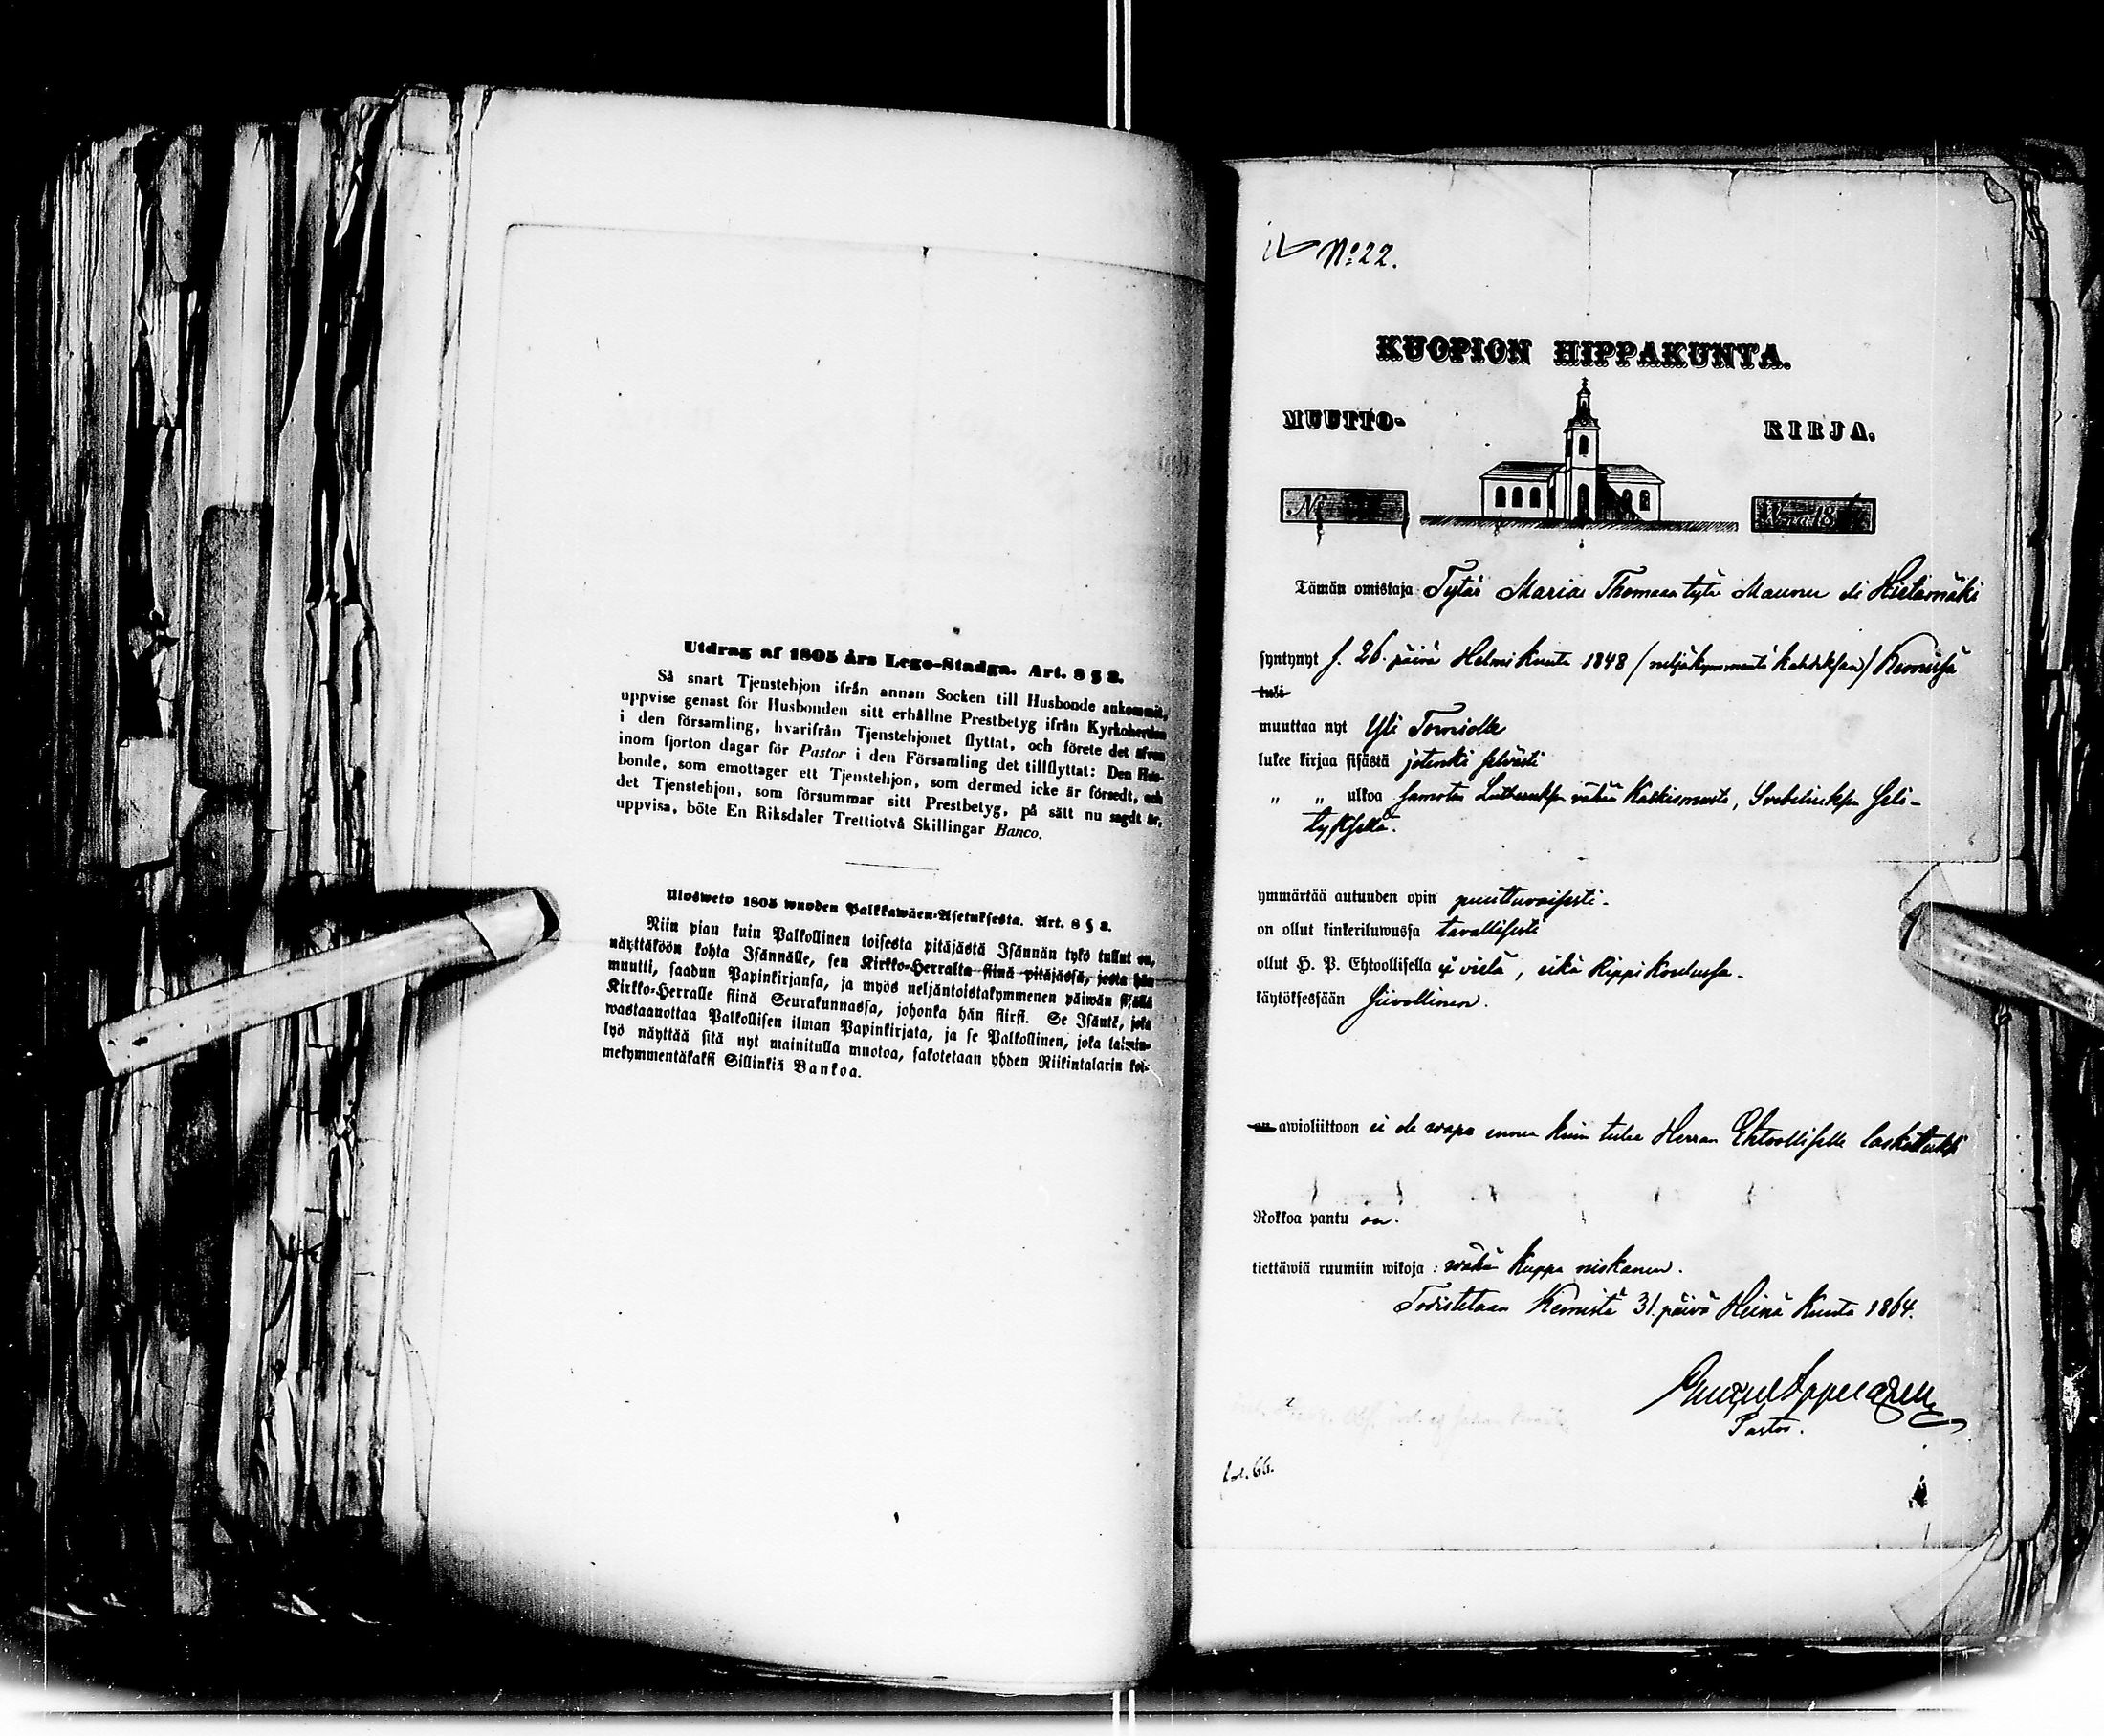 Utdrag af 1805 års Lego-Stadga. Art. 8 § 8.
Så snart Tjenstehjon ifrån annan Socken till Husbonde ankommit,
uppvise genast för Husbonden sitt erhållne Prestbetyg ifrån Kyrkoherden
i den församling, hvarifrån Tjenstehjonet flyttat, och förete det äfven
inom fjorton dagar för Pastor i den Församling det tillflyttat: Den Hus-
bonde, som emottager ett Tjenstehjon, som dermed icke är försedt, och
det Tjenstehjon, som försummar sitt Prestbetyg, på sätt nu sagdt är,
uppvisa, böte En Riksdaler Trettiotvå Skillingar Banco.
Ulosweto 1805 wuoden Palkkawäen-Asetuksesta. Art. 8 § 8.
Niin pian kuin Palkollinen toisesta pitäjästä Isännän tykö tullut on,
näyttäköön kohta Isännälle, sen Kirkko-Herralta siinä pitäjässä, josta hän
muutti, saadun Papinkirjansa, ja myös neljäntoistakymmenen päiwän sisällä
Kirkko-Herralle siinä Seurakunnassa, johonka hän siirsi. Se Isäntä, joka
wastaanottaa Palkollisen ilman Papinkirjata, ja se Palkollinen, joka laimin-
lyö näyttää sitä nyt mainitulla muotoa, sakotetaan yhden Riikintalarin kol-
mekymmentäkaksi Sillinkiä Bankoa.
No 22.
KUOPION HIPPAKUNTA.
MUUTTO- KIRJA.
N W-na 18
Tämän omistaja Tytär Maria Thomaan tytär Maunu Hietamäki
syntynyt 26. päivä Helmi Kuuta 1848 (neljäkymmentä kahdeksan) Kemissä
tuli
muuttaa nyt Yli Torniolle
lukee kirjaa sisästä jotenki selvästi
" " ulkoa samoten Lutheruksen vähän Katkismusta, Svebeliuksen seli-
tyksellä.
ymmärtää autuuden opin puuttuvaisesti.
on ollut kinkeriluwussa tavallisesti
ollut H. P. Ehtoollisella ei vielä, eikä Rippi Koulussa.
käytöksessään siivollinen.
on awioliittoon ei ole wapa ennen kuin tulee Herran Ehtoolliselle lasketuksi
Rokkoa pantu on.
tiettäwiä ruumiin wikoja : wähän Kuppa niskanen.
Todistetaan Kemistä 31. päivä Heinä Kuuta 1864.
Pastor.
fol. 66.